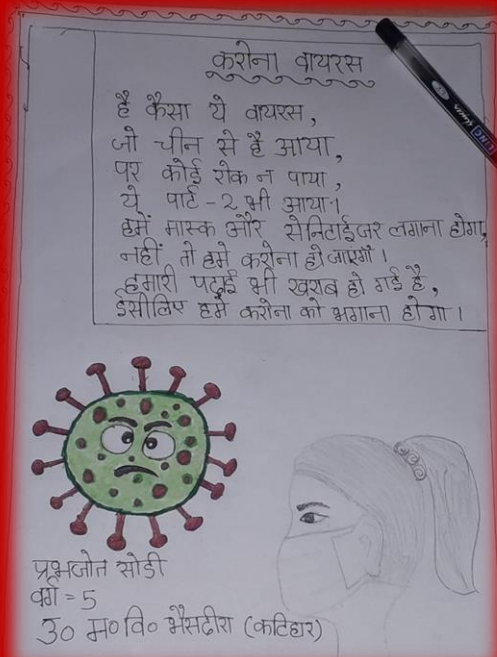 करोना वायरस
है कैसा ये वायरस,
जो चीन से है आया,
पर कोई रोक न पाया,
ये पार्ट-2 भी आया।
हमें मास्क और सेनिटाईजर लगाना होगा,
नहीं तो हमे करोना हो जाएगाँ।
हमारी पढ़ाई भी खराब हो गई है,
ईसीलिए हमें करोना को भगाना होगा।
प्रभजोत सोडी
वर्ग = 5
उ० म० वि० भैंसदीरा (कटिहार)